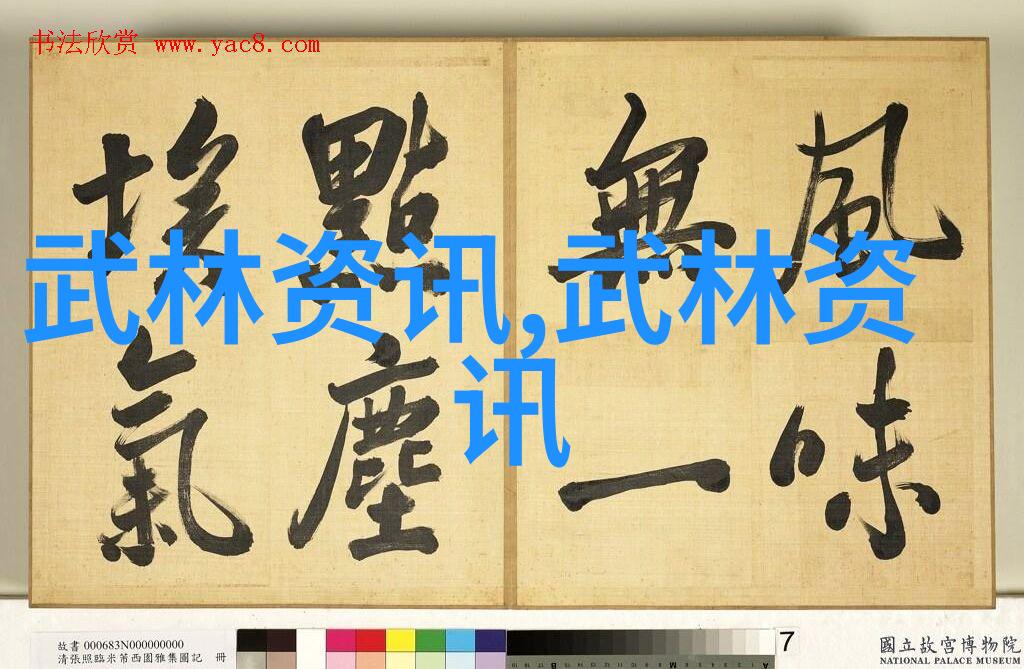 书法欣赏 www.yac8.com
風味
無一
點塵
埃氣
武林资讯,武林资
讯
故書 000683N000000000
清張照臨米芾西園雅集圖記 冊
7
國立故宮博物院
NATIONAL PALACE MUSEUM